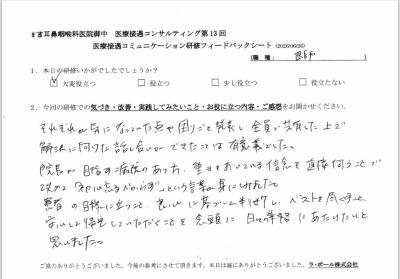 耳鼻咽喉科医院御中 医療接遇コンサルティング第13回
医療接遇コミュニケーション研修フィードバックシート (2026/06/26)
(職種: 医師 )
1. 本日の研修いかがでしたでしょうか？
大変役立つ 役立つ 少し役立つ 役立たない
2. 今回の研修での気づき・改善・実践してみたいこと・お役に立つ内容・ご感想をお聞かせください。
それぞれが気になっていた点や困りごとを発表し全員で共有した上で
解決に向けた話し合いができたことは有意義でした。
院長が目指す病院のあり方、
改めて「初心忘るべからず」という言葉が身にしみました。
患者の目線に立つこと、良心に基づいて ベストを尽くすこと
安心して帰宅していただくことを念頭に 日々の準備にあたりたいと
思いました。
ご協力ありがとうございました。今後の参考にさせて頂きます。本日は誠にありがとうございました。ラ・ポール株式会社